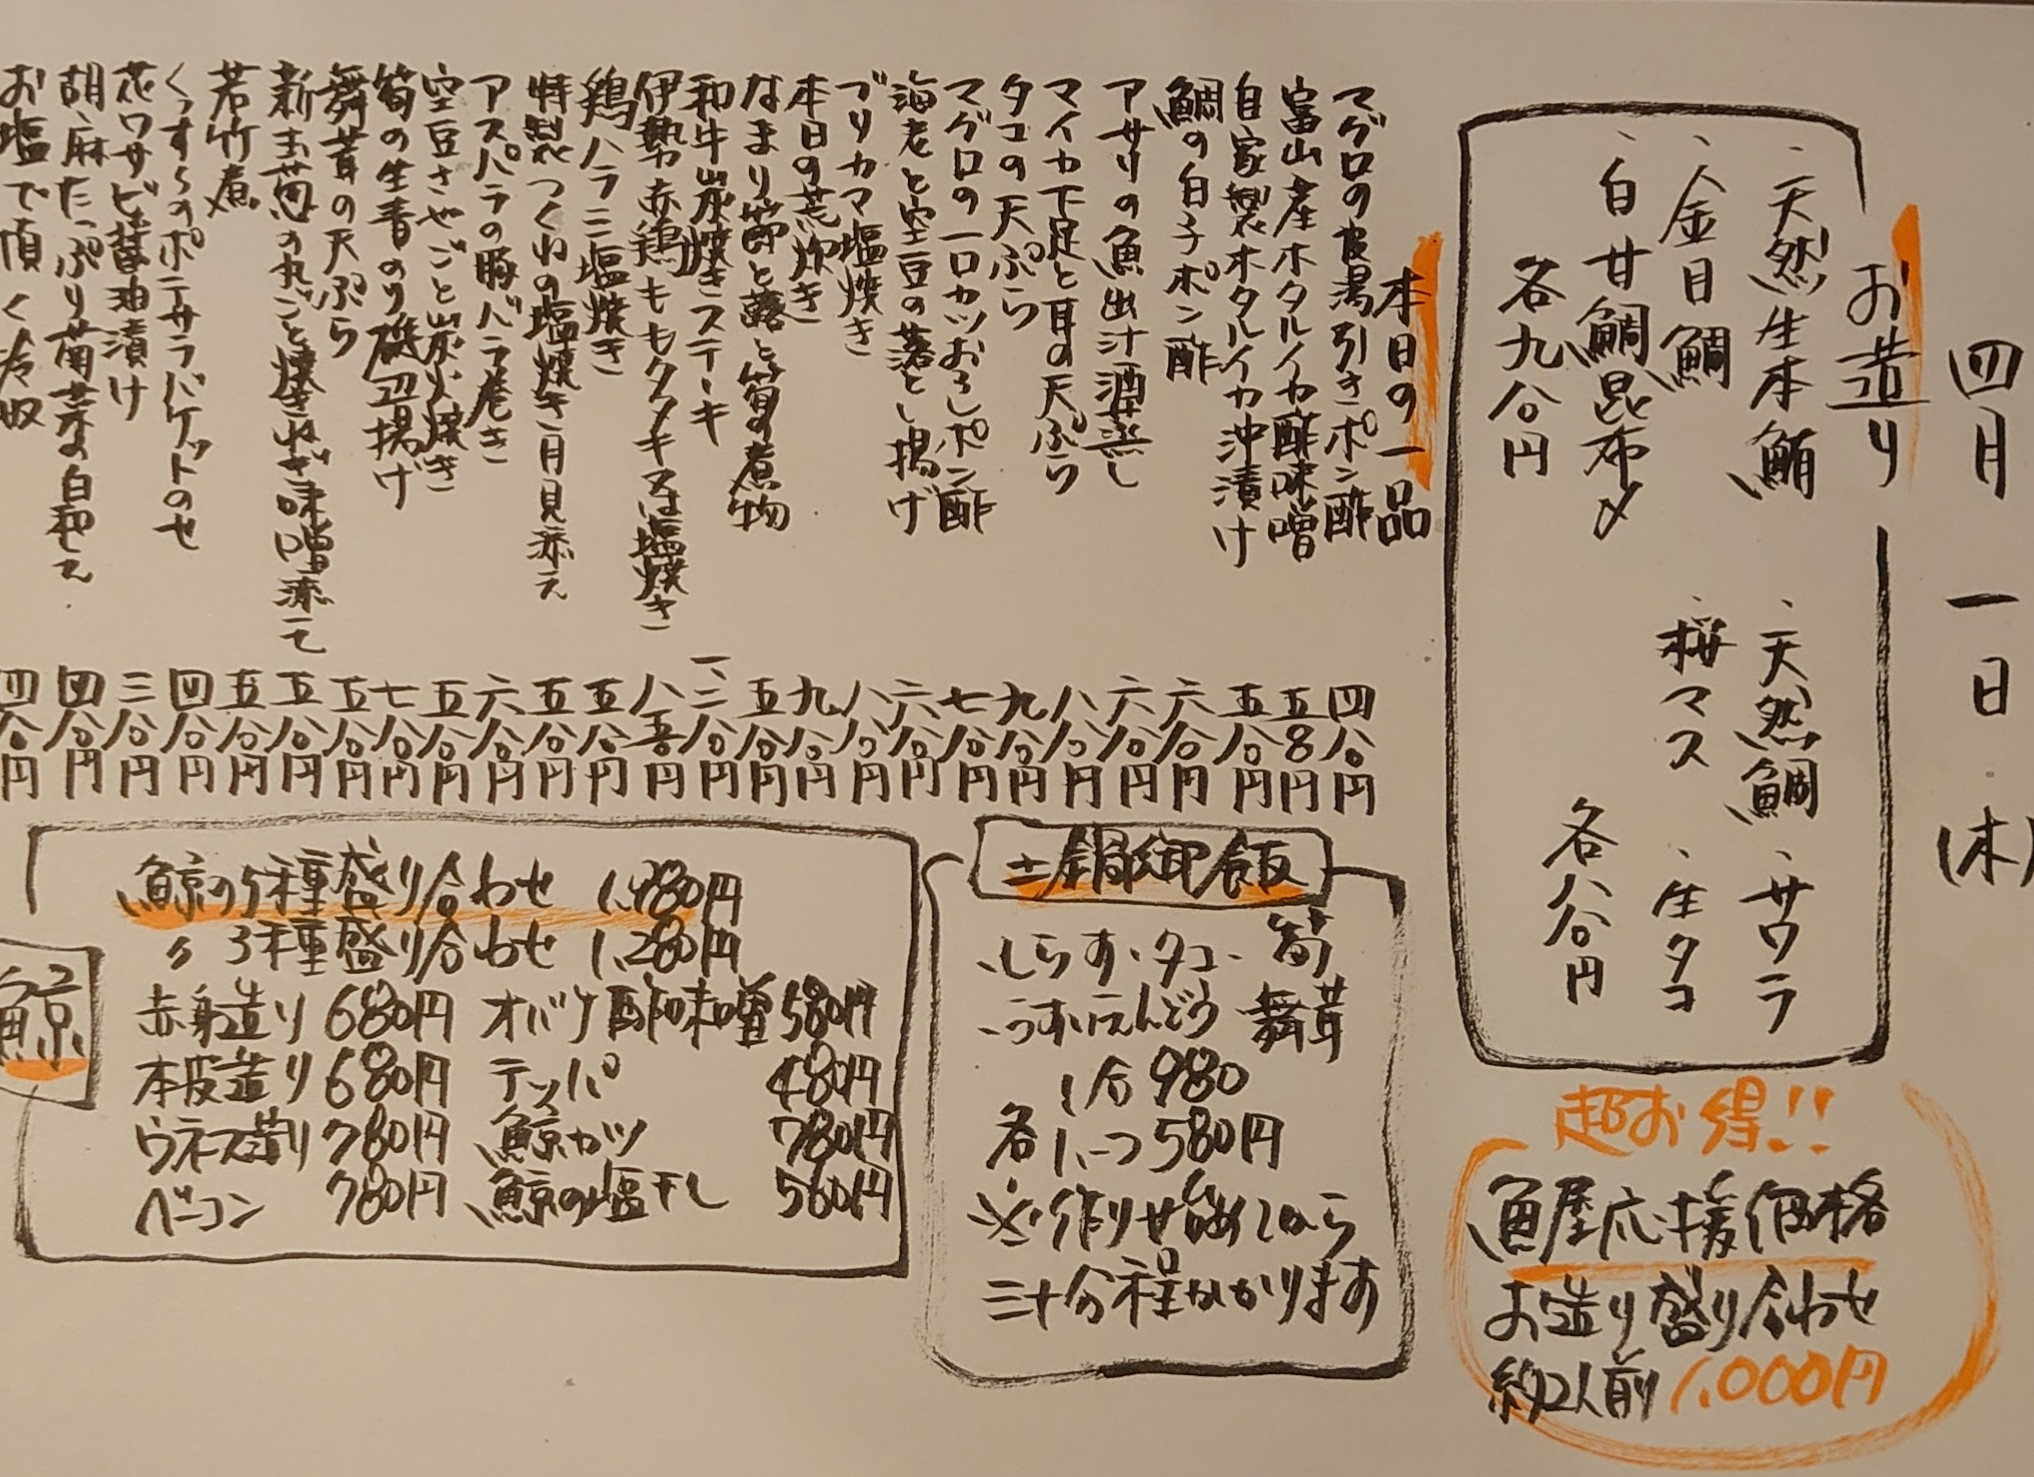 四月一日(木)
お造り
、天然生本鮪
、金目鯛
、白甘鯛昆布〆
各九八〇円
、天然鯛、サワラ
桜マス、生タコ
各八八〇円
本日の一品
マグロの皮湯引きポン酢 四八〇円
富山産ホタルイカ酢味噌 五八〇円
自家製ホタルイカ沖漬け 五八〇円
鯛の白子ポン酢 六八〇円
アサリの魚出汁酒蒸し 六八〇円
マイカ下足と耳の天ぷら 八八〇円
タコの天ぷら 九八〇円
マグロの一口カツおろしポン酢 七八〇円
海老と空豆の落とし揚げ 六八〇円
ブリカマ塩焼き 八八〇円
本日の荒炊き 九八〇円
なまり節と蕗と筍の煮物 五八〇円
和牛炭焼きステーキ 一、二八〇円
伊勢赤鶏ももタタキ又は塩焼き 八五〇円
鶏ハラミ塩焼き 五八〇円
特製つくねの塩焼き月見添え 五八〇円
アスパラの豚バラ巻き 六八〇円
空豆さやごと炭火焼き 五八〇円
筍の生青のり磯辺揚げ 七八〇円
舞茸の天ぷら 五八〇円
新玉葱の丸ごと焼きねぎ味噌添えて 五八〇円
若竹煮 五八〇円
くんすらのポテサラバケットのせ 四八〇円
花ワサビ醤油漬け 三八〇円
胡麻たっぷり菊菜の白和え 四八〇円
お塩で頂く冷奴 四八〇円
超お得!!
魚屋応援価格
お造り盛り合わせ
約2人前 1.000円
土鍋御飯
、しらす、タコ、筍
、うすいえんどう 舞茸
1合980
各1/2つ580円
※作り始めてから
三十分程かかります
鯨
鯨の5種盛り合わせ 1.980円
〃 3種盛り合わせ 1.280円
赤身造り 680円 オバケ酢味噌 580円
本皮造り 680円 テッパ 480円
ウネス造り 780円 鯨カツ 780円
ベーコン 780円 鯨の塩干し 560円